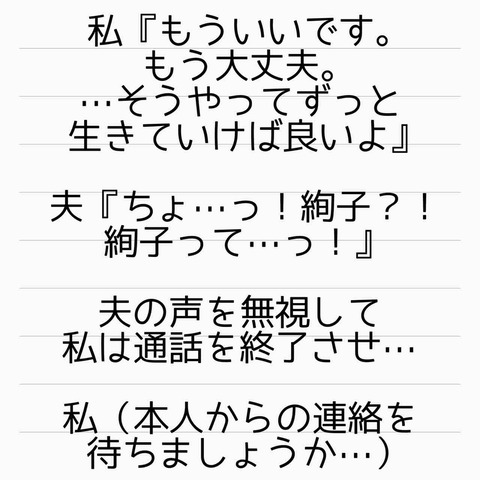 私『もういいです。
もう大丈夫。
…そうやってずっと
生きていけば良いよ』
夫『ちょ…っ！絢子？！
絢子って…っ！』
夫の声を無視して
私は通話を終了させ…
私（本人からの連絡を
待ちましょうか…）